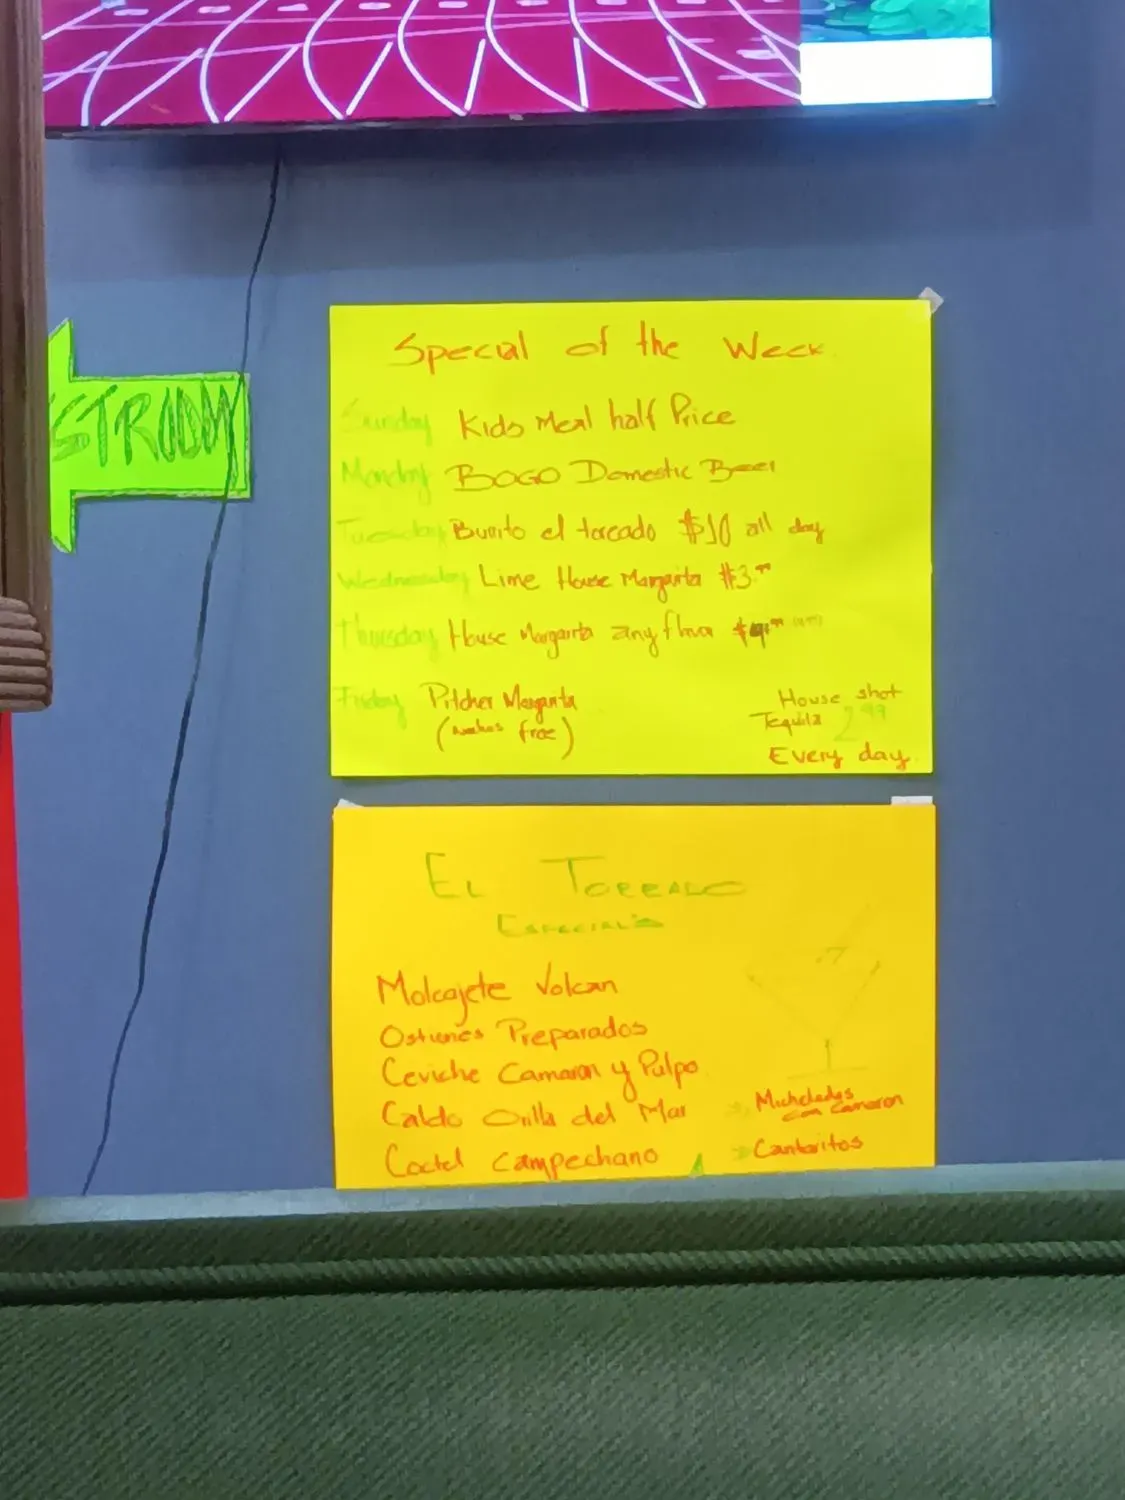 STROOM
Special of the Week
Sunday Kids Meal half Price
Monday BOGO Domestic Beer
Tuesday Burrito el toreado $10 all day
Wednesday Lime House Margarita $3.99
Thursday House Margarita any flavor
Friday Pitcher Margarita
(nachos free)
House shot
Tequila 2.99
Every day
EL TOREADO
ESPECIAL'S
Molcajete Volcan
Ostiones Preparados
Ceviche Camaron y Pulpo
Caldo Orilla del Mar
Coctel Campechano
Micheladas
con Camaron
Cantaritos